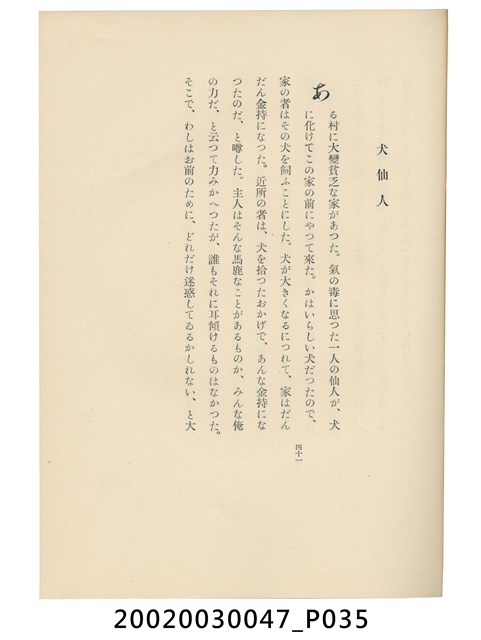 犬仙人
ある村に大變貧乏な家があつた。氣の毒に思つた一人の仙人が、犬
に化けてこの家の前にやつて來た。かはいらしい犬だつたので、
家の者はその犬を飼ふことにした。犬が大きくなるにつれて、家はだん
だん金持になつた。近所の者は、犬を拾つたおかげで、あんな金持にな
つたのだ、と噂した。主人はそんな馬鹿なことがあるものか、みんな俺
の力だ、と云つて力みかへつたが、誰もそれに耳傾けるものはなかつた。
そこで、わしはお前のために、どれだけ迷惑してゐるかしれない、と大
四十一
20020030047_P035